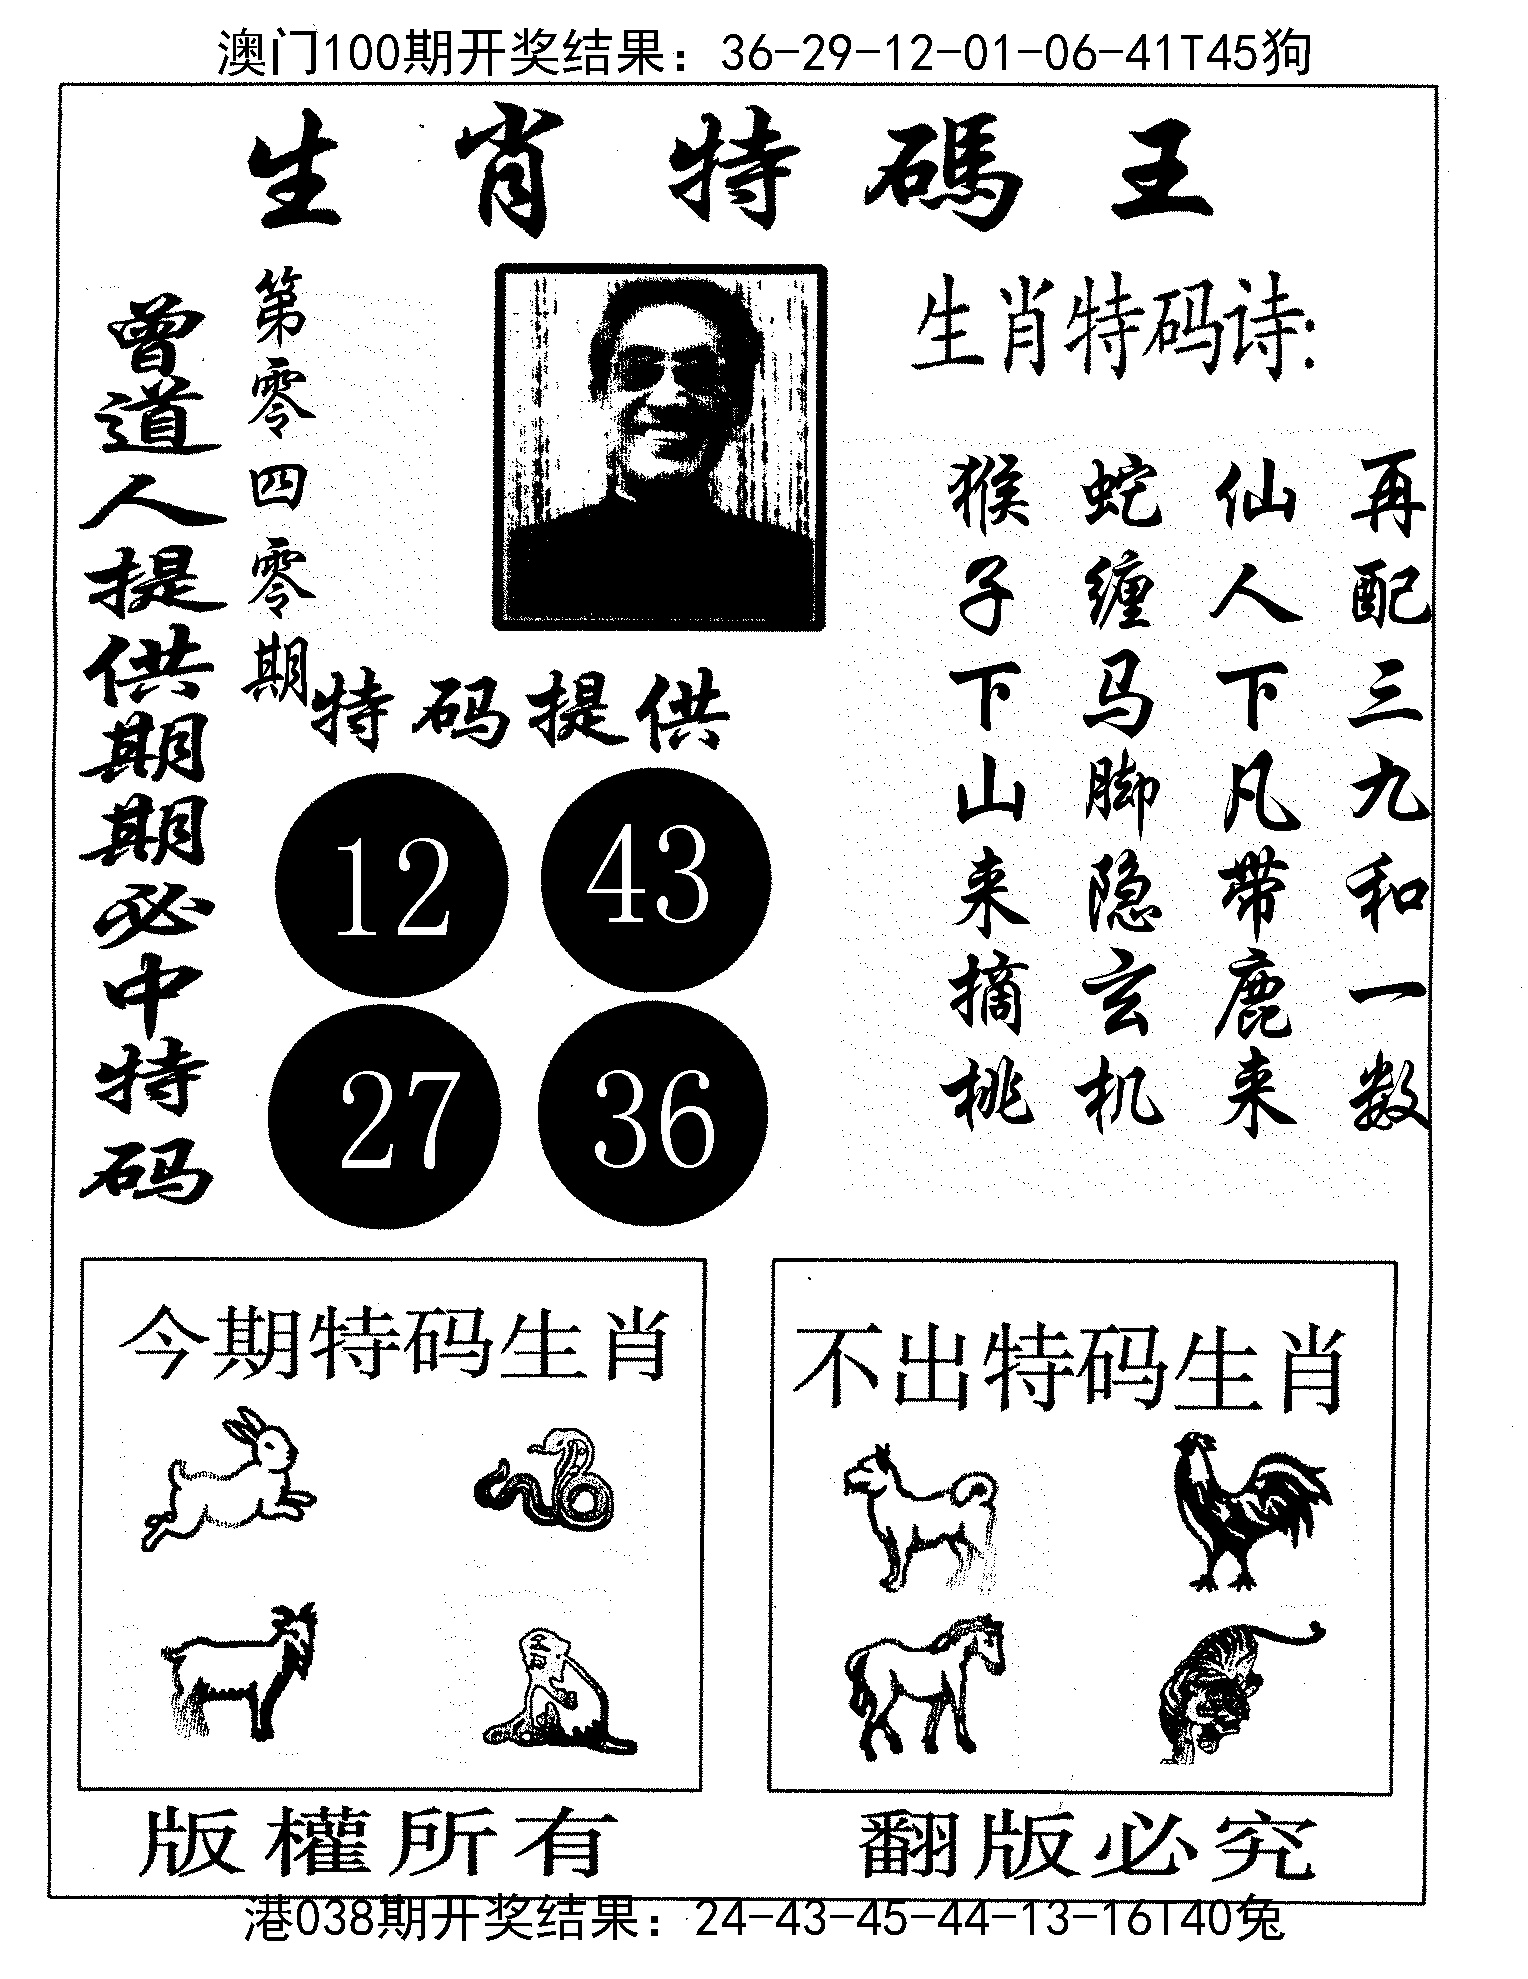 澳门100期开奖结果：36-29-12-01-06-41T45狗
生肖特碼王
曾道人提供期期必中特码
第零四零期
生肖特码诗:
猴子下山来摘桃
蛇缠马脚隐玄机
仙人下凡带鹿来
再配三九和一数
特码提供
12 43
27 36
今期特码生肖
不出特码生肖
版權所有
翻版必究
港038期开奖结果：24-43-45-44-13-16T40兔